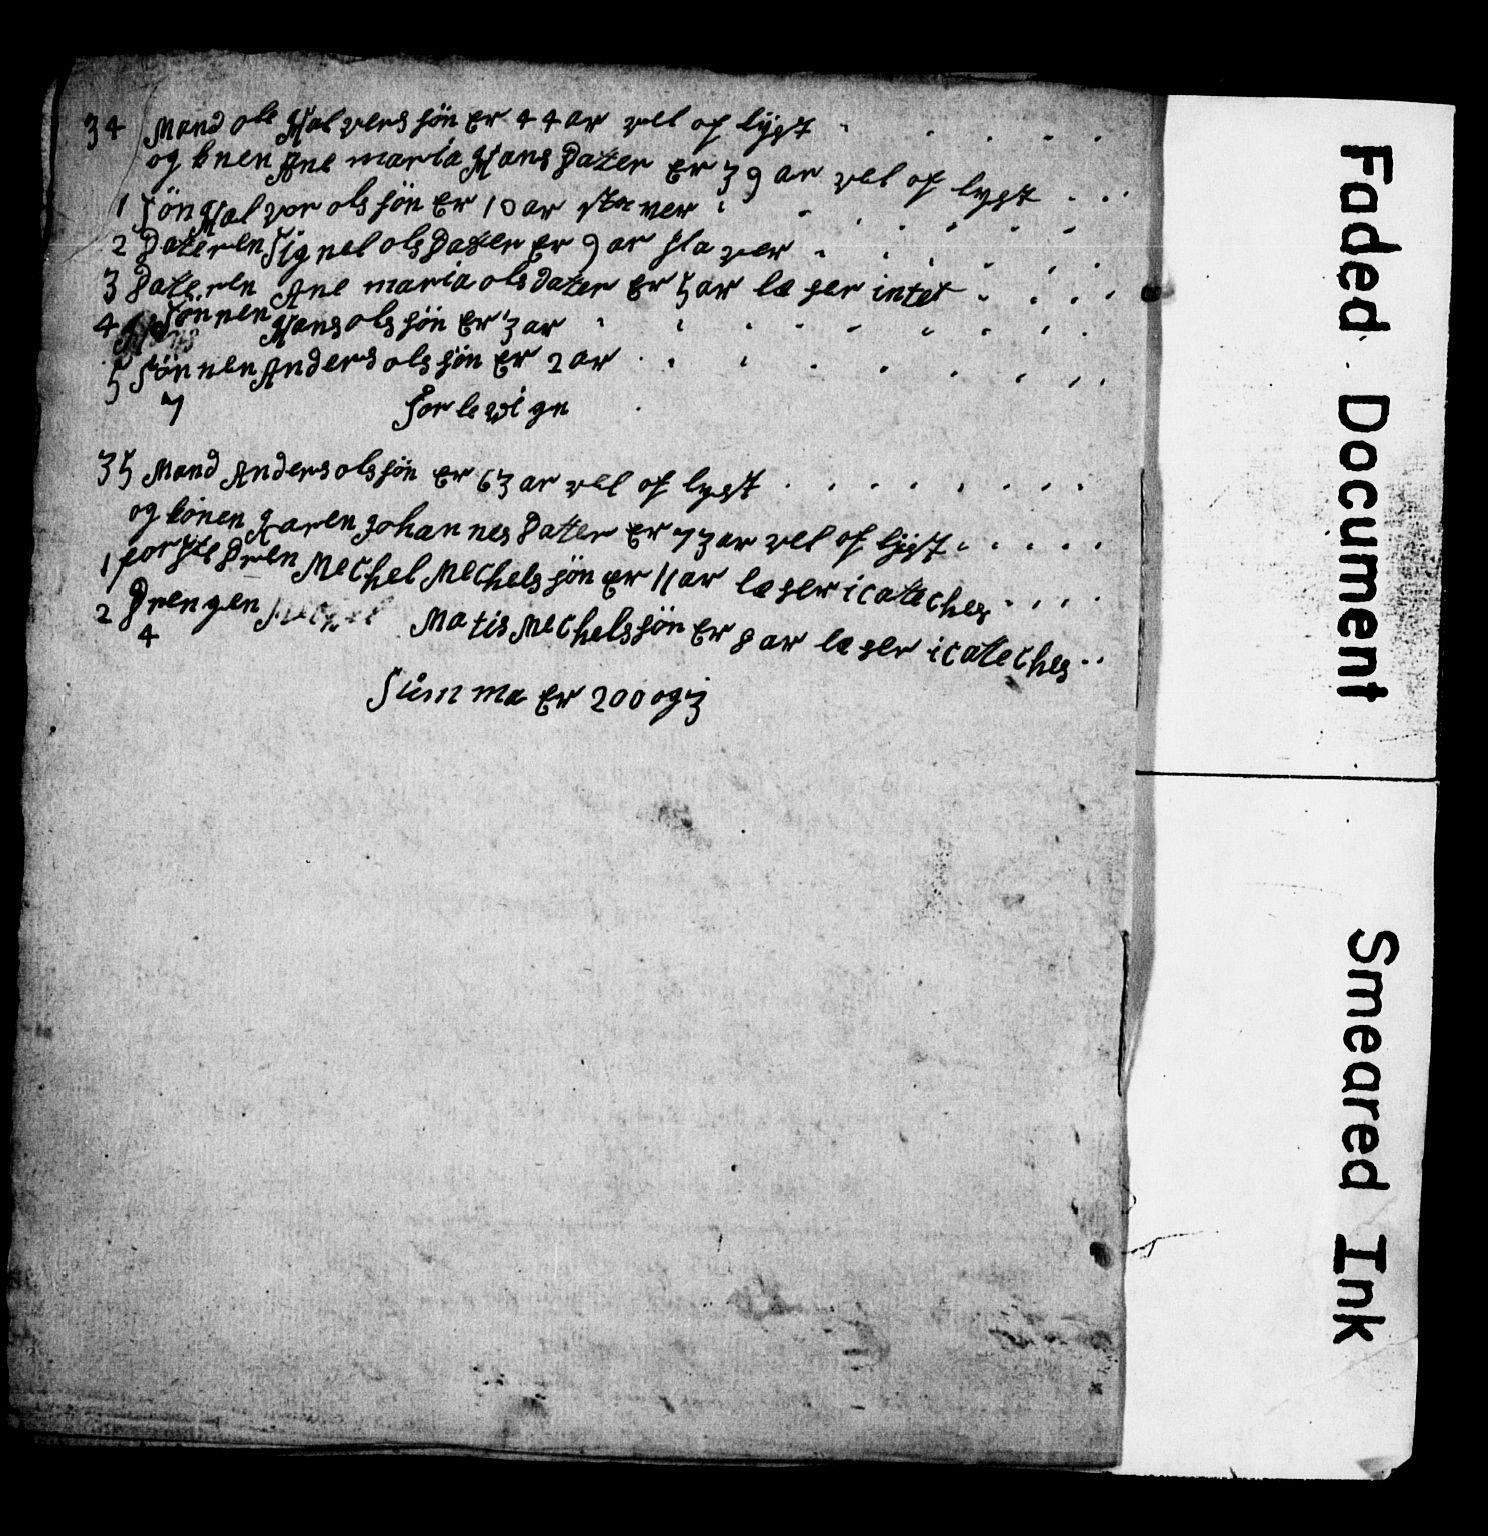 34 Mand ole Halvers søn er 44 ar vel op lÿst
og knen Ane maria Hans dater er 39 ar vel op lyst
1 søn Halvor ols søn er 10 ar staver
2 dateren Signel ols dater er 9 ar staver
3 dateren Ane maria ols dater er 5 ar læser intet
4 Sønnen Hans ols søn er 3 ar
5 Sønnen Anders ols søn er 2 ar
7 forlevign
35 Mand Anders ols søn er 63 ar vel op lyst
og konen Karen Johannes datter er 73 ar vel op lÿst
1 dren Mechel Mechels søn er 11 ar læser i cateches
2 Drengen Matis Mechels søn er 8 ar læser i cateches
4
Summa er 200 og 3
Faded Document
Smeared Ink